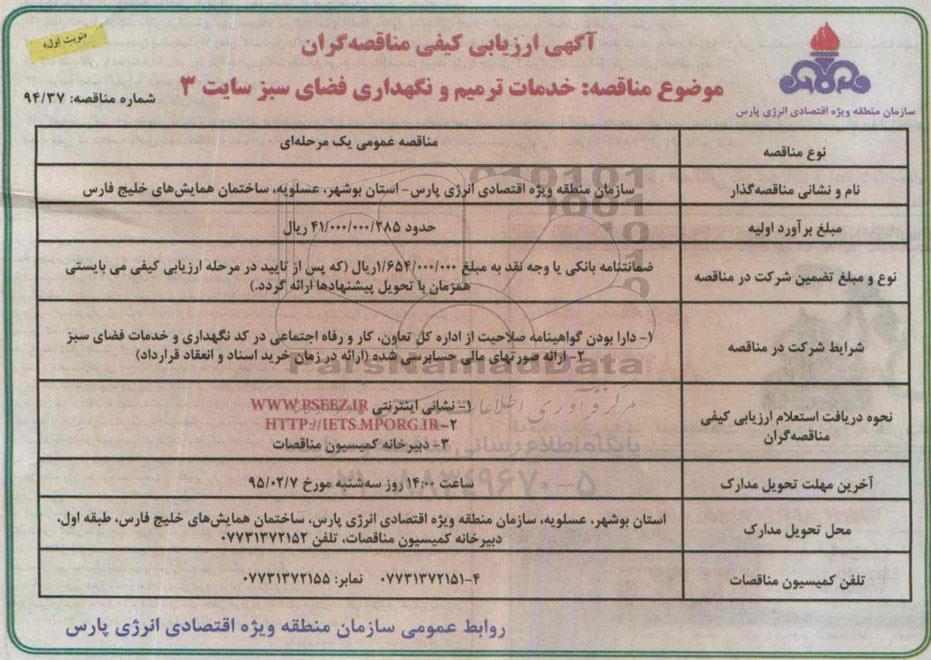 «نوبت اول»
آگهی ارزیابی کیفی مناقصه‌گران
موضوع مناقصه: خدمات ترمیم و نگهداری فضای سبز سایت ۳
شماره مناقصه: ۹۴/۳۷
سازمان منطقه ویژه اقتصادی انرژی پارس
نوع مناقصه
مناقصه عمومی یک مرحله‌ای
نام و نشانی مناقصه‌گذار
سازمان منطقه ویژه اقتصادی انرژی پارس- استان بوشهر، عسلویه، ساختمان همایش‌های خلیج فارس
مبلغ برآورد اولیه
حدود ۴۱/۰۰۰/۰۰۰/۲۸۵ ریال
نوع و مبلغ تضمین شرکت در مناقصه
ضمانتنامه بانکی یا وجه نقد به مبلغ ۱/۶۵۴/۰۰۰/۰۰۰ریال (که پس از تایید در مرحله ارزیابی کیفی می بایستی
همزمان با تحویل پیشنهادها ارائه گردد.)
شرایط شرکت در مناقصه
۱- دارا بودن گواهینامه صلاحیت از اداره کل تعاون، کار و رفاه اجتماعی در کد نگهداری و خدمات فضای سبز
۲- ارائه صورتهای مالی حسابرسی شده (ارائه در زمان خرید اسناد و انعقاد قرارداد)
نحوه دریافت استعلام ارزیابی کیفی
مناقصه‌گران
۱- نشانی اینترنتی WWW.PSEEZ.IR
۲- HTTP://IETS.MPORG.IR
۳- دبیرخانه کمیسیون مناقصات
آخرین مهلت تحویل مدارک
ساعت ۱۴:۰۰ روز سه‌شنبه مورخ ۹۵/۰۲/۷
محل تحویل مدارک
استان بوشهر، عسلویه، سازمان منطقه ویژه اقتصادی انرژی پارس، ساختمان همایش‌های خلیج فارس، طبقه اول،
دبیرخانه کمیسیون مناقصات، تلفن ۰۷۷۳۱۳۷۲۱۵۲
تلفن کمیسیون مناقصات
۰۷۷۳۱۳۷۲۱۵۱-۴ نمابر: ۰۷۷۳۱۳۷۲۱۵۵
روابط عمومی سازمان منطقه ویژه اقتصادی انرژی پارس
ParsNamadData
پایگاه اطلاع رسانی
۰۲۱-۸۸۳۴۹۶۷۰-۵